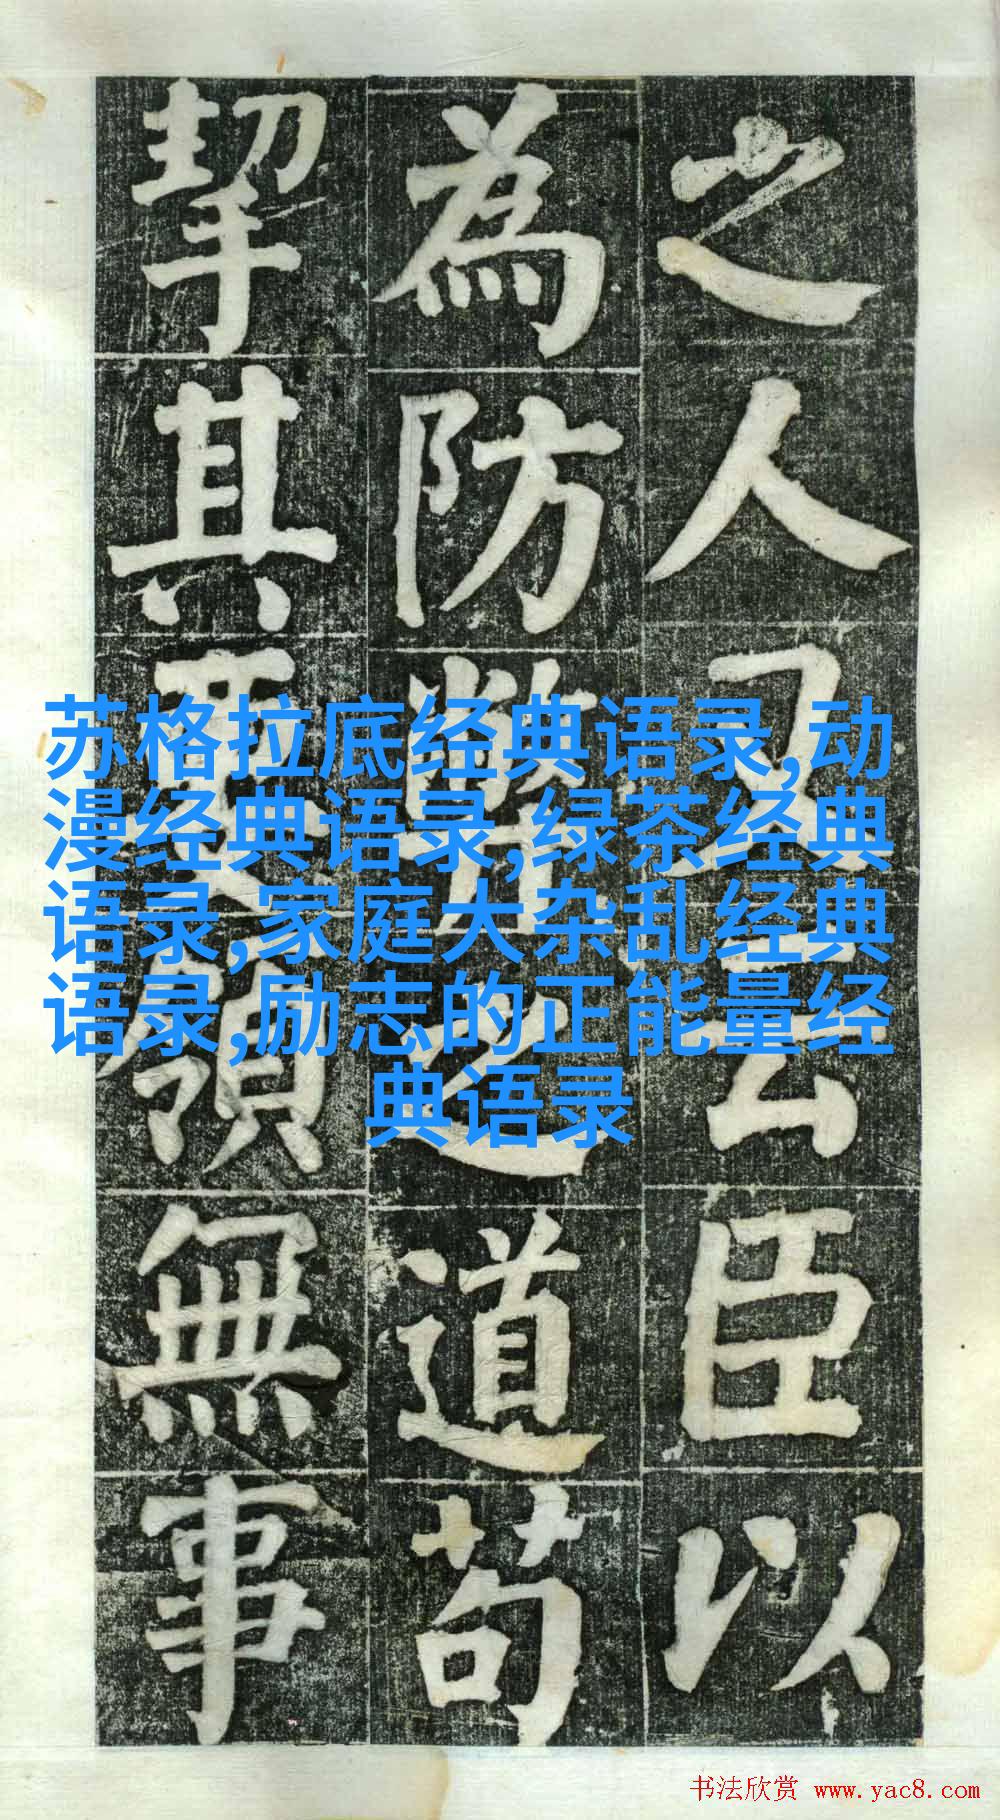 之人又云臣以
為防弊之道苟
挈其要領無事
苏格拉底经典语录,动
漫经典语录,绿茶经典
语录,家庭大杂乱经典
语录,励志的正能量经
典语录
书法欣赏 www.yac8.com